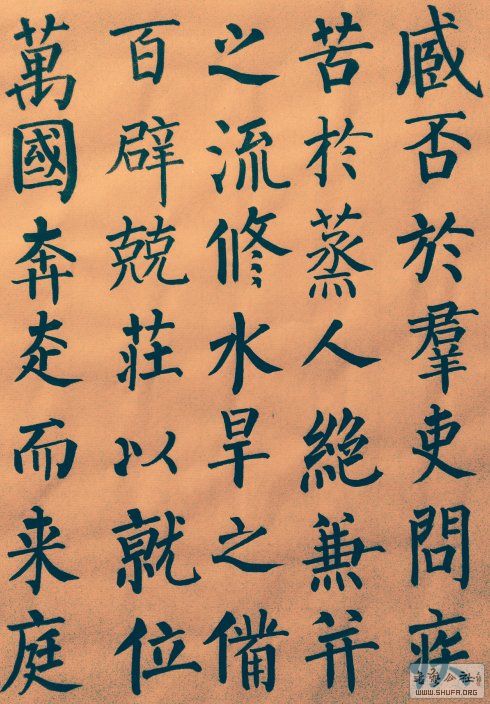 臧否於羣吏問疾
苦於蒸人絶兼并
之流修水旱之備
百辟兢莊以就位
萬國奔走而来庭
WWW.SHUFA.ORG